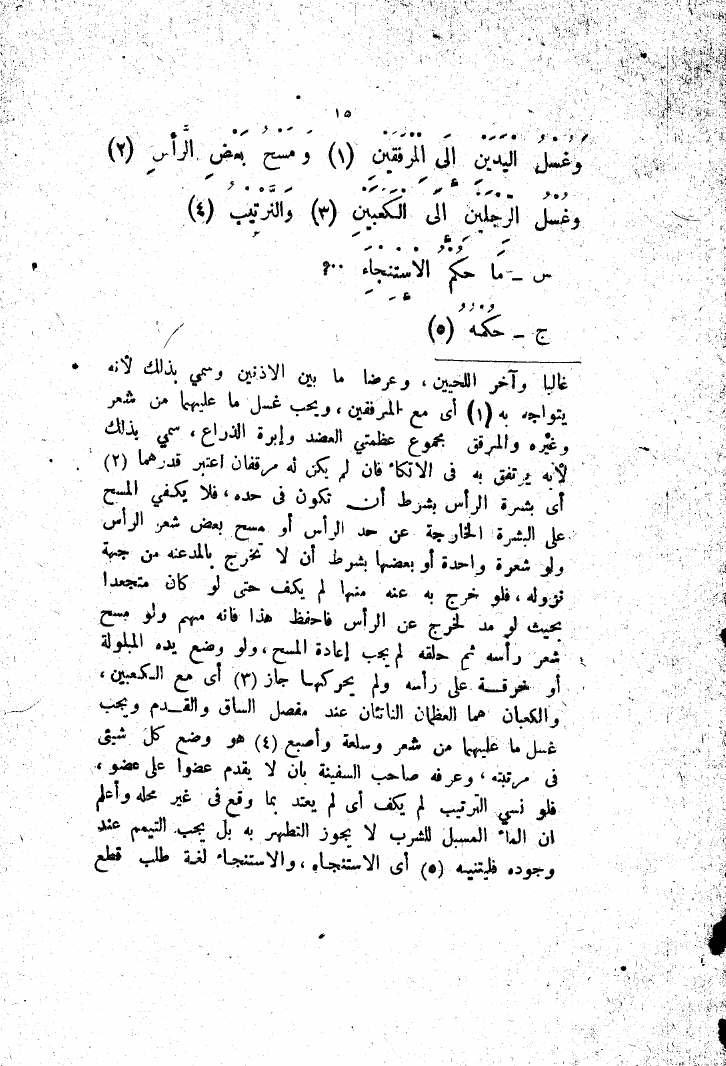 ١٥
وَغَسْلُ الْيَدَيْنِ إِلَى الْمِرْفَقَيْنِ (١) وَمَسْحُ بَعْضِ الرَّأْسِ (٢)
وَغَسْلُ الرِّجْلَيْنِ إِلَى الْكَعْبَيْنِ (٣) وَالتَّرْتِيْبُ (٤)
س ـ مَا حُكْمُ الْاِسْتِنْجَاءِ ٠٠٠؟
ج ـ حُكْمُهُ (٥)
غالبا وآخر اللحيين، وعرضا ما بين الاذنين وسمي بذلك لأنه
يتواجه به (١) أى مع المرفقين، ويجب غسل ما عليهما من شعر
وغيره والمرفق مجموع عظمتي العضد وإبرة الذراع، سمي بذلك
لأنه يرتفق به فى الاتكاء فان لم يكن له مرفقان اعتبر قدرهما (٢)
أى بشرة الرأس بشرط أن تكون فى حده، فلا يكفي المسح
على البشرة الخارجة عن حد الرأس أو مسح بعض شعر الرأس
ولو شعرة واحدة أو بعضها بشرط أن لا تخرج بالمد عنه من جهة
نزوله، فلو خرج به عنه منها لم يكف حتى لو كان متجعدا
بحيث لو مد لخرج عن الرأس فاحفظ هذا فانه مهم ولو مسح
شعر رأسه ثم حلقه لم يجب إعادة المسح، ولو وضع يده المبلولة
أو خرقة على رأسه ولم يحركها جاز (٣) أى مع الكعبين،
والكعبان هما العظمان الناتئان عند مفصل الساق والقدم ويجب
غسل ما عليهما من شعر وسلعة وأصبع (٤) هو وضع كل شيئ
فى مرتبته، وعرفه صاحب السفينة بان لا يقدم عضوا على عضو،
فلو نسي الترتيب لم يكف أى لم يعتد بما وقع فى غير محله وأعلم
ان الماء المسبل للشرب لا يجوز التطهر به بل يجب التيمم عند
وجوده فليتنبه (٥) أى الاستنجاء، والاستنجاء لغة طلب قطع